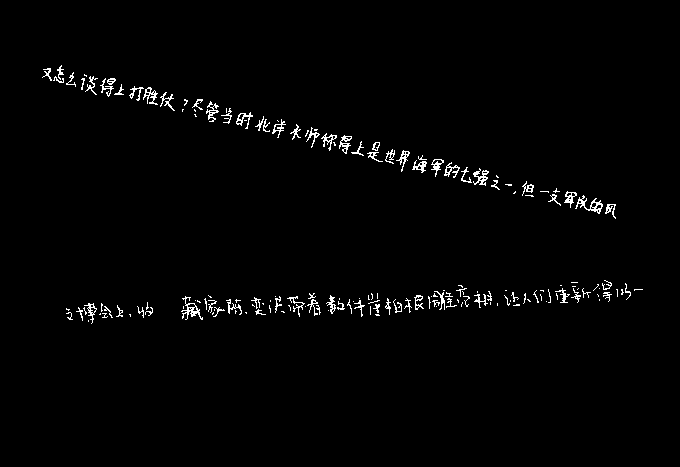 又怎么谈得上打胜仗？尽管当时北洋水师你得上是世界海军的七强之一，但一支军队的风
文博会上，收藏家陈奕洪带着数件崖柏根雕亮相，让人们重新得以一